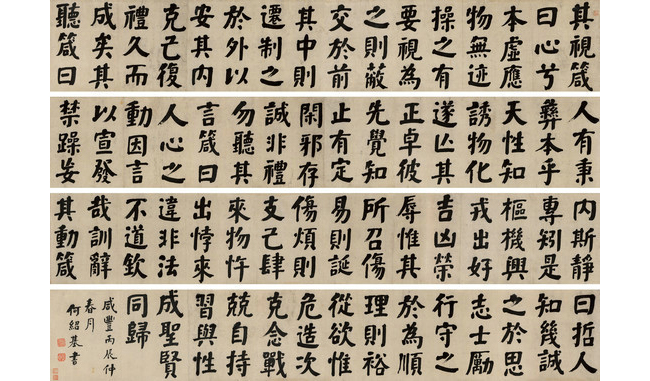 其視箴
曰心兮
本虛應
物無迹
操之有
要視為
之則蔽
交於前
其中則
遷制之
於外以
安其內
克己復
禮久而
咸矣其
聽箴曰
人有秉
彝本乎
天性知
誘物化
遂亾其
正卓彼
先覺知
止有定
閑邪存
誠非禮
勿聽其
言箴曰
人心之
動因言
以宣發
禁躁妄
內斯靜
專矧是
樞機興
戎出好
吉凶榮
辱惟其
所召傷
易則誕
傷煩則
支己肆
來物忤
出悖來
違非法
不道欽
哉訓辭
其動箴
曰哲人
知幾誠
之於思
志士勵
行守之
於為順
理則裕
從欲惟
危造次
克念戰
兢自持
習與性
成聖賢
同歸
咸豐丙辰仲
春月
何紹基書